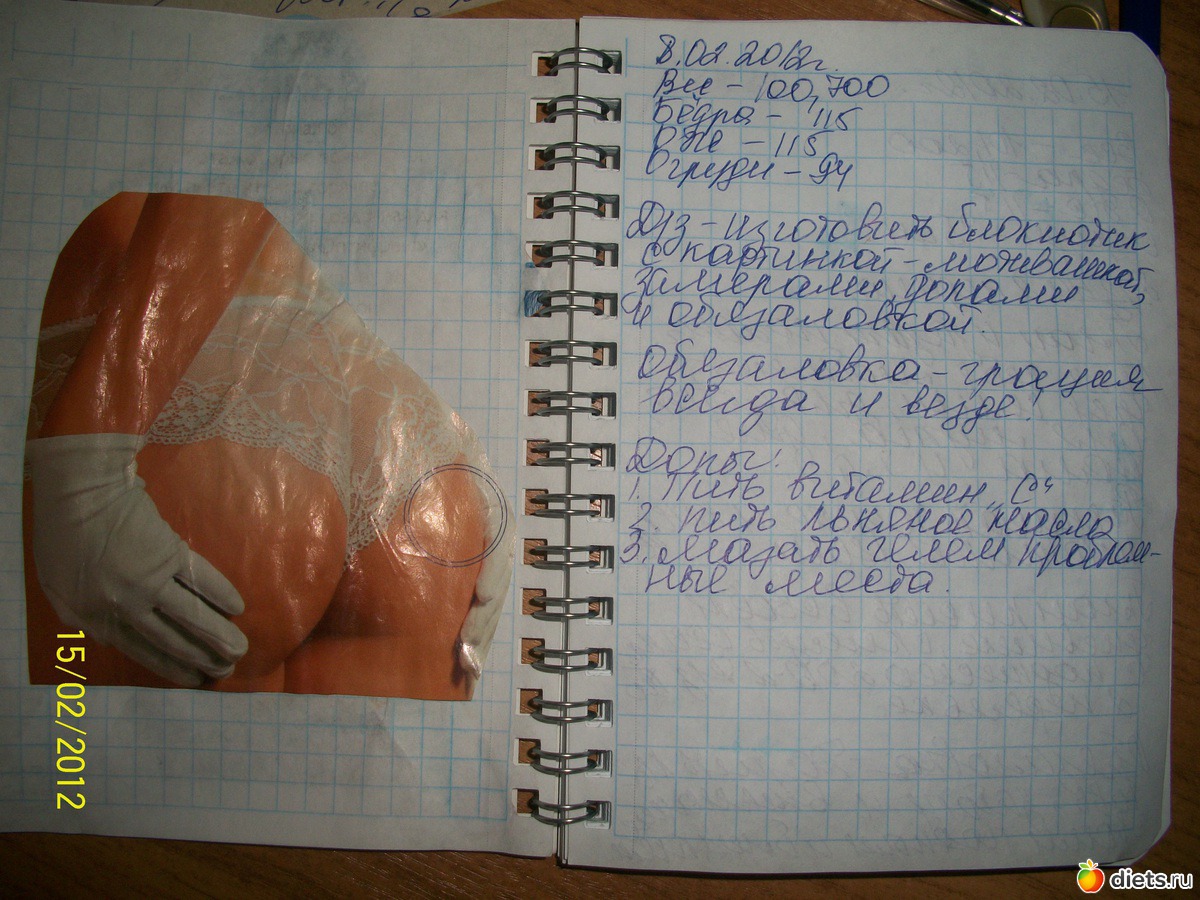 8.02.2012г.
Вес - 100,700
Бёдра - 115
Оже - 115
Огруди - 94
Д/з - изготовить блокнотик
с картинкой - моживашкой,
замерами, допами
и обязаловкой.
Обязаловка - грация
всегда и везде!
Допы:
1. Пить витамин „С“
2. пить льняное масло
3. мазать гелем проблем-
ные места.
15/02/2012
diets.ru